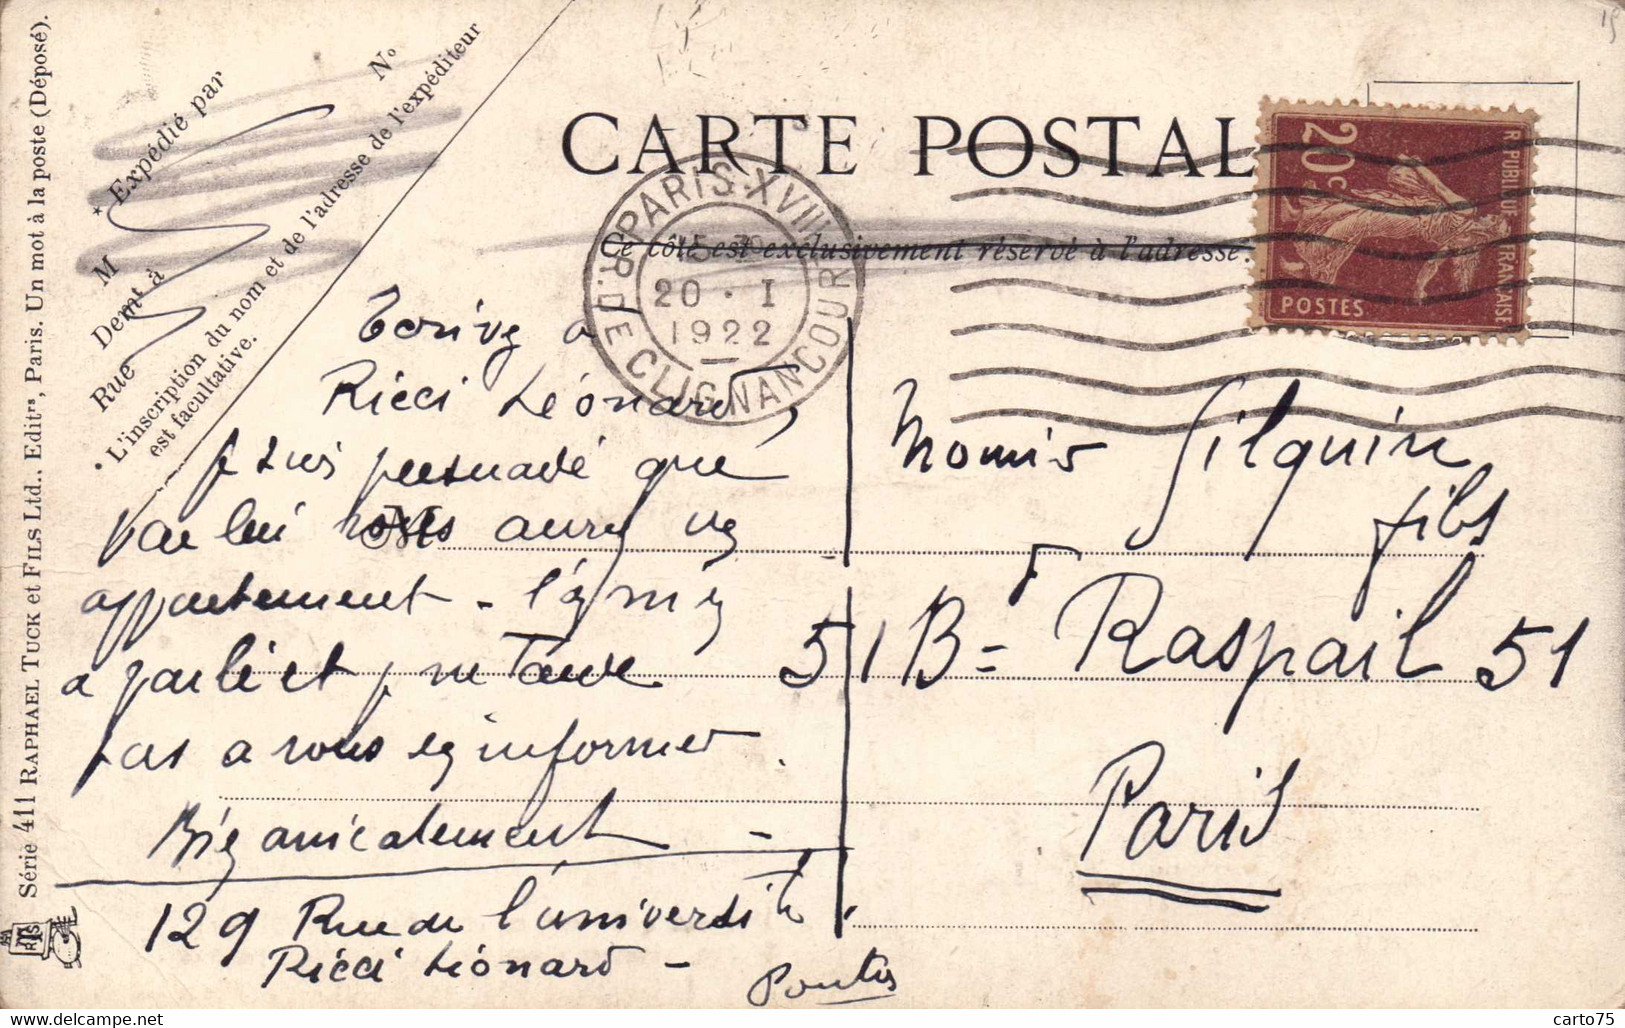 CARTE POSTALE
Ce côté est exclusivement réservé à l'adresse.
* Expédié par
M
N°
Demt à
Rue
• L'inscription du nom et de l'adresse de l'expéditeur
est facultative.
Série 411 RAPHAEL TUCK et FILS Ltd., Editrs, Paris. Un mot à la poste (Déposé).
PARIS·XVIII
R. DE CLIGNANCOURT
20 · I
1922
REPUBLIQUE FRANÇAISE
20 c
POSTES
Ecrivez a
Ricci Léonard,
je suis persuadé que
par lui vous aurez un
appartement - l'ennui
a parlé et je ne tarde
pas a vous en informer.
Bien amicalement -
129 Rue de l'université
Ricci Léonard -
Gilquin
fils
51 Bd Raspail 51
Paris
carto75